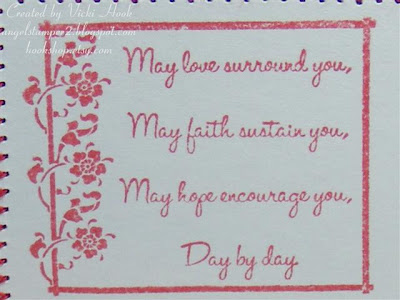 Created by Vicki Hook
angelstamper2.blogspot.com
hookshop.etsy.com
May love surround you,
May faith sustain you,
May hope encourage you,
Day by day.